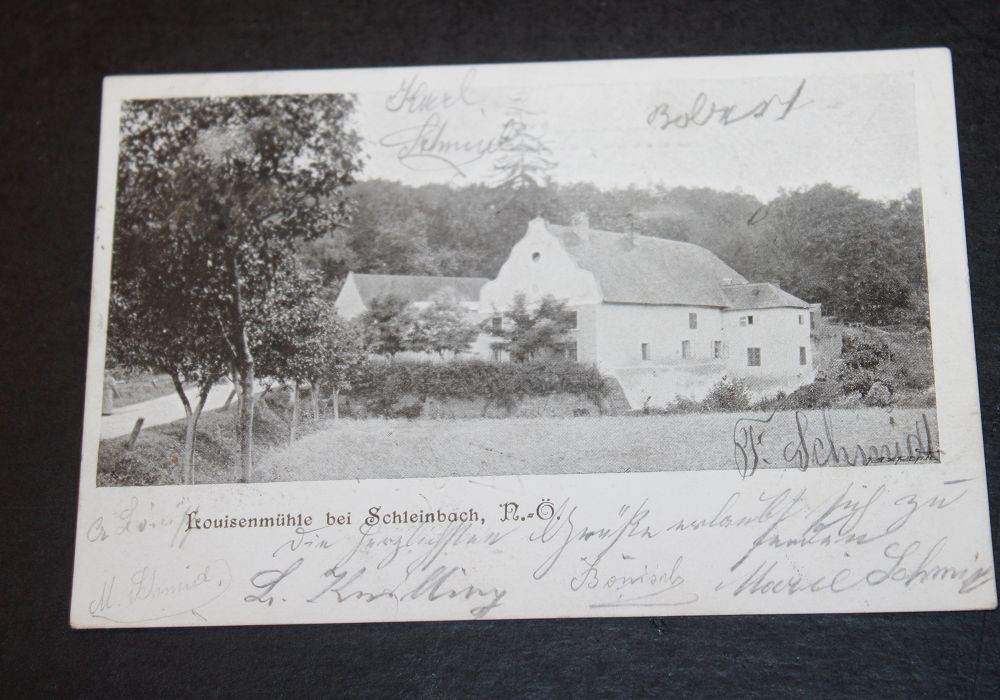 Karl
Schmid
Bolvart
F. Schmidt
Louisenmühle bei Schleinbach, N.-Ö.
Die herzlichsten Grüße erlaubt sich zu
senden
M. Schmid
Bönisch
Marie Schmid